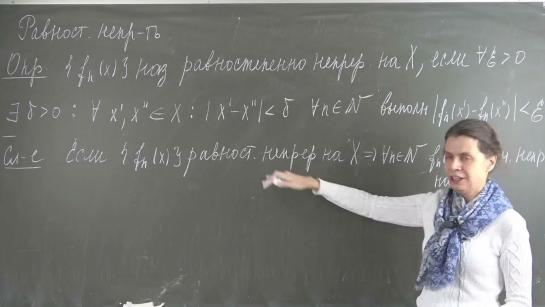 Равност. непр-ть
Опр. {fₙ(x)} наз равностепенно непрер. на X, если ∀ε>0
∃ δ>0 : ∀ x', x'' ∈ X : |x'-x''|<δ ∀n∈N выполн |fₙ(x')-fₙ(x'')|<ε
Сл-е Если {fₙ(x)} равност. непрер на X ⇒ ∀n∈N непр